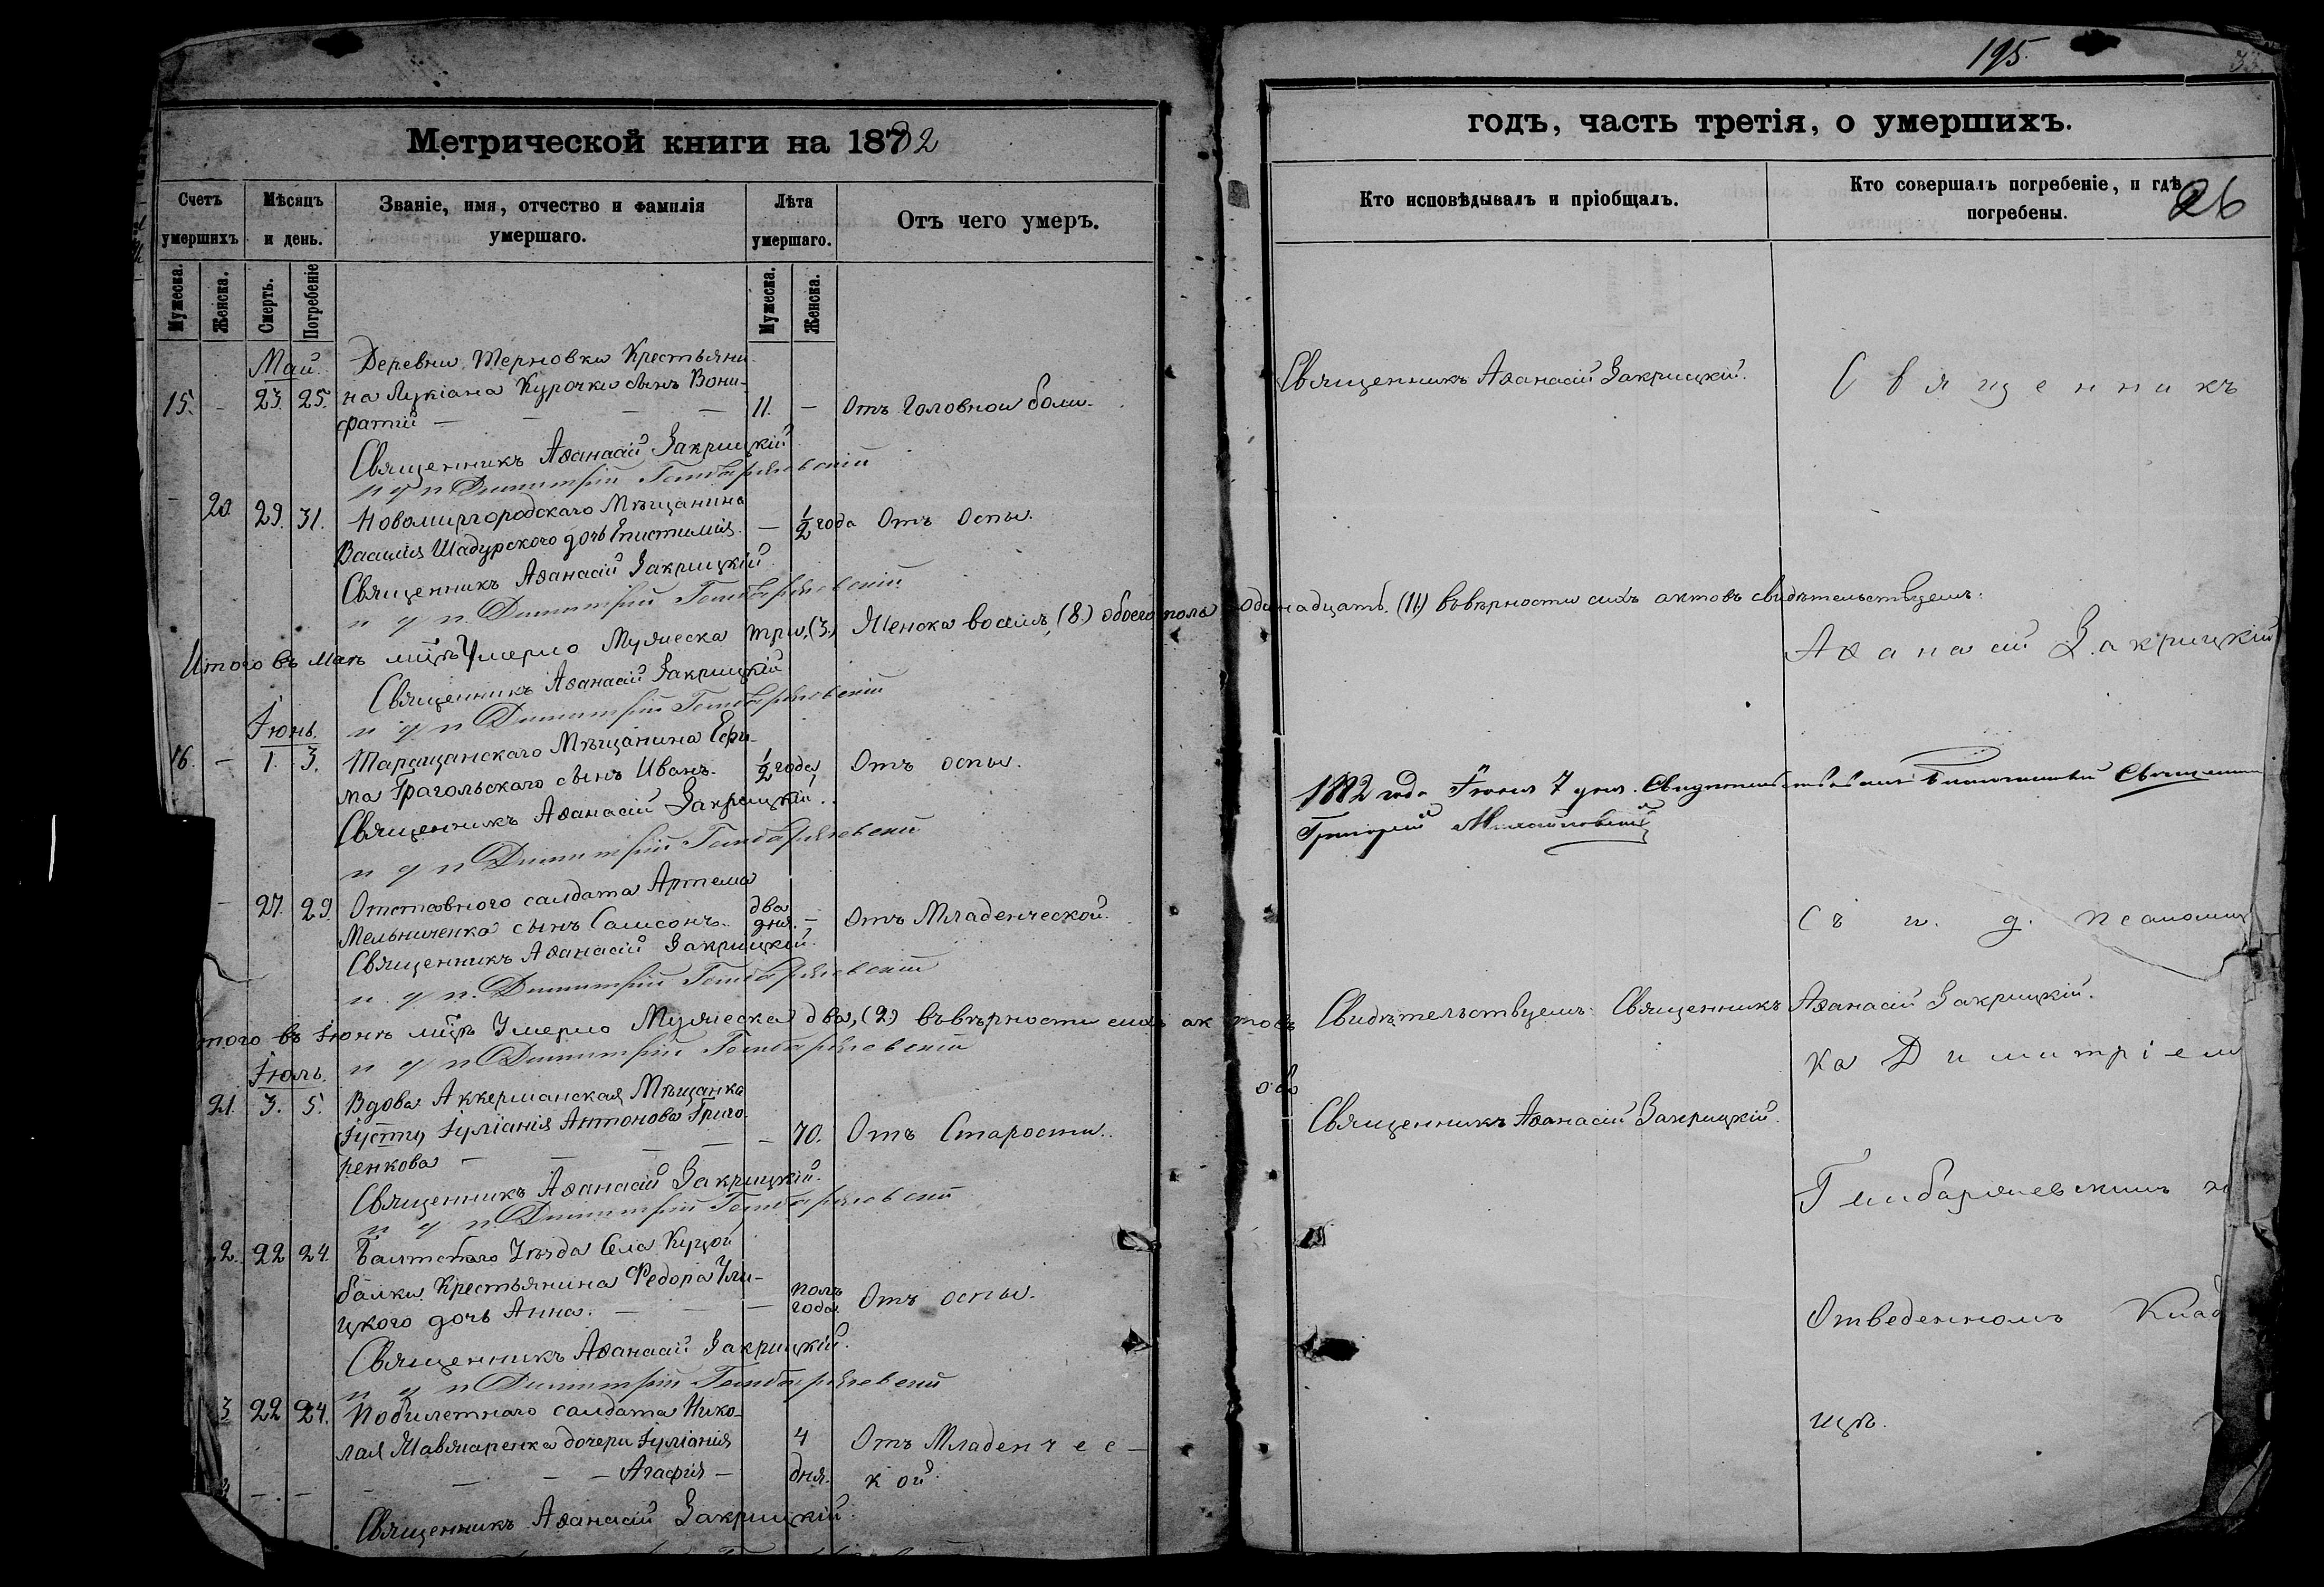 195.
26
Метрической книги на 1882
годъ, часть третія, о умершихъ.
Счетъ умершихъ
Мѣсяцъ и день.
Званіе, имя, отчество и фамилія умершаго.
Лѣта умершаго.
Отъ чего умеръ.
Кто исповѣдывалъ и пріобщалъ.
Кто совершалъ погребеніе, и гдѣ погребены.
Мужеска.
Женска.
Смерть.
Погребеніе
Мужеска.
Женска.
Май.
Деревни Терновки Крестьяни-
15. - 23. 25. на Лукіана Курочки сынъ Вони-
фатій — — — 11. — Отъ головной боли.
Священникъ Аѳанасій Закрицкій.
Священникъ
Священникъ Аѳанасій Закрицкій
и д п Димитрій
- 20 29. 31. Новомиргородскаго Мѣщанина
Василія Шадурского дочь Епистимія. — ½ года Отъ Оспы.
Священникъ Аѳанасій Закрицкій.
и д п. Димитрій
Итого въ маѣ мцѣ Умерло Мужеска три, (3.) Женска восемь, (8.) обоего пола одинадцать. (11.) въ вѣрности сихъ актовъ свидѣтельствуемъ:
Аѳанасій Закрицкій
Священникъ Аѳанасій Закрицкій
и д п Димитрій
Іюнь.
16. — 1. 3. Таращанского Мѣщанина Ефи-
ма Грагольскаго сынъ Иванъ. ½ года, Отъ оспы.
Священникъ Аѳанасій Закрицкій.
и д п Димитрій
1882 года Іюня 7 дня. Благочинный Священникъ
Григорій
- 27. 29. Отставного салдата Артема
Мельниченка сынъ Самсонъ. два дня. — Отъ Младенческой.
Священникъ Аѳанасій Закрицкій.
и. д п. Димитрій
Съ и. д. псаломщ
того въ Іюнѣ мцѣ Умерло Мужеска два, (2.) въ вѣрности сихъ актовъ Свидѣтельствуемъ: Священникъ Аѳанасій Закрицкій.
и д п Димитрій
ка Димитріем
Іюль.
21. 3. 5. Вдова Аккерманская Мѣщанка
Іуліанія Антонова Григо-
ренкова — — — — — 70. Отъ Старости.
Священникъ Аѳанасій Закрицкій.
Священникъ Аѳанасій Закрицкій.
и д п. Димитрій
Гембаржевскимъ
2. 22 24. Балтского Уѣзда Села Куцой
балки Крестьянина Федора Ули-
цкого дочь Анна. — — — полъ года. Отъ оспы.
Отведенномъ Клад
Священникъ Аѳанасій Закрицкій.
и д п Димитрій
3 22 24. салдата Нико-
лая дочери Іуліанія 4 Отъ Младенчес-
— — — Агафія — дня. кой.
ищѣ.
Священникъ Аѳанасій Закрицкій.